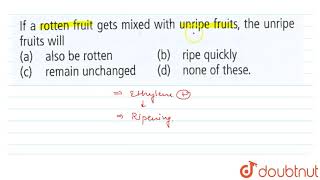 If a rotten fruit gets mixed with unripe fruits, the unripe
fruits will
(a) also be rotten (b) ripe quickly
(c) remain unchanged (d) none of these.
⇒ Ethylene (P)
↓
⇒ Ripening
doubtnut